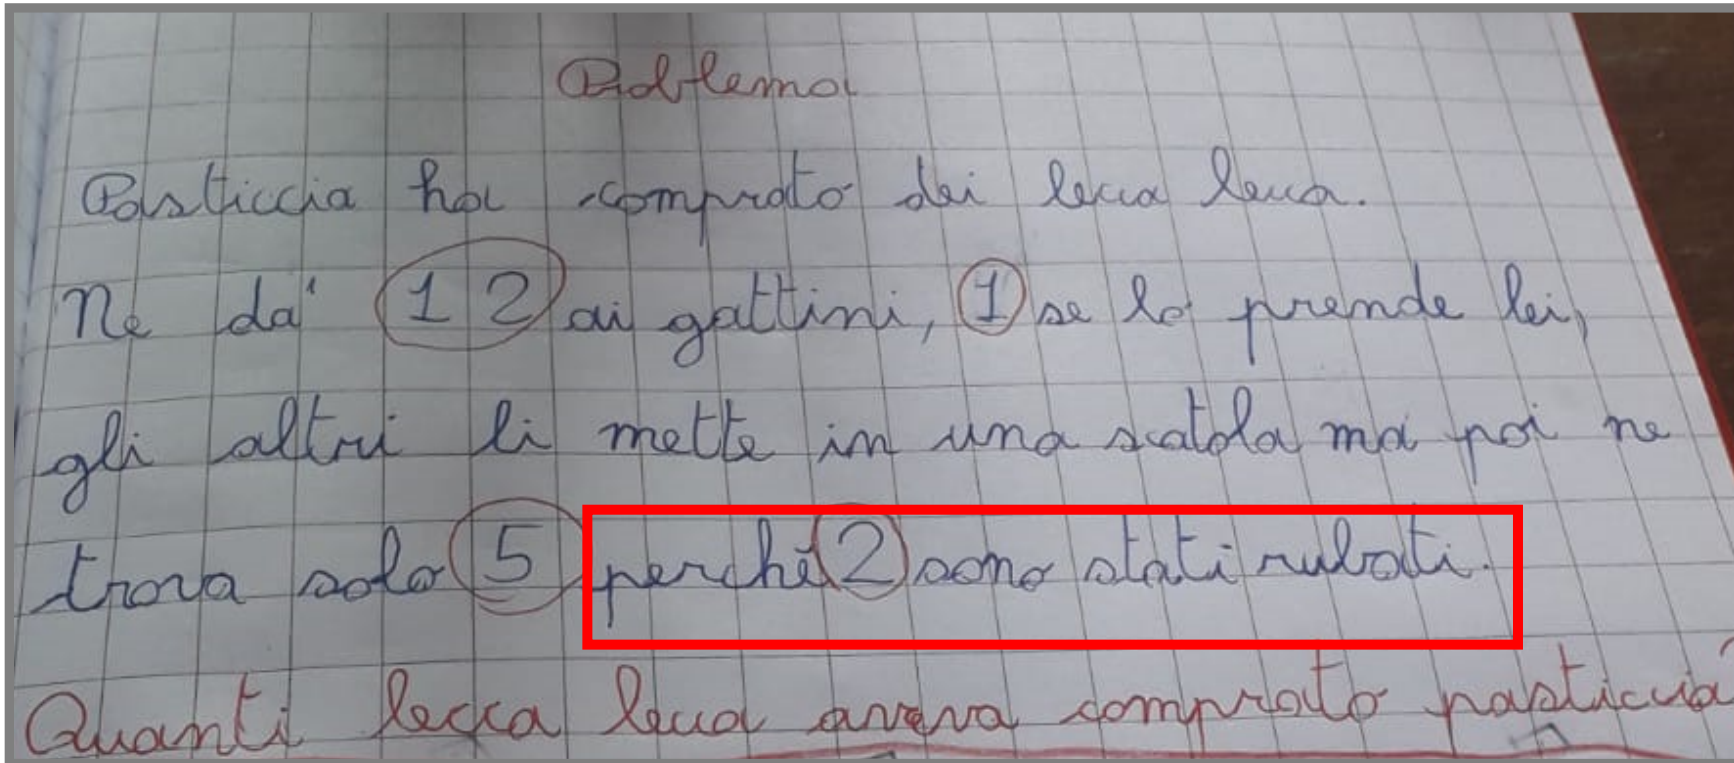 Problema
Pasticcia ha comprato dei lecca lecca.
Ne da' 12 ai gattini, 1 se lo prende lei,
gli altri li mette in una scatola ma poi ne
trova solo 5 perché 2 sono stati rubati.
Quanti lecca lecca aveva comprato pasticcia?